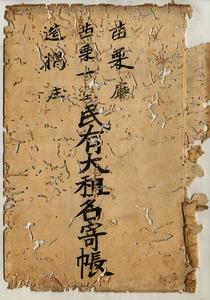 苗栗廳
苗栗一堡
造橋庄
民有大租名寄帳